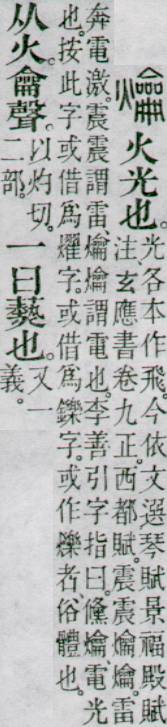 爚火光也。光各本作飛。今依文選琴賦景福殿賦
注玄應書卷九正。西都賦。震震爚爚。雷
奔電激。震震謂雷。爚爚謂電也。李善引字指曰。儵爚、電光
也。按此字或借爲燿字。或借爲鑠字。或作爍者、俗體也。
从火。龠聲。以灼切。二部。一曰爇也。又一義。